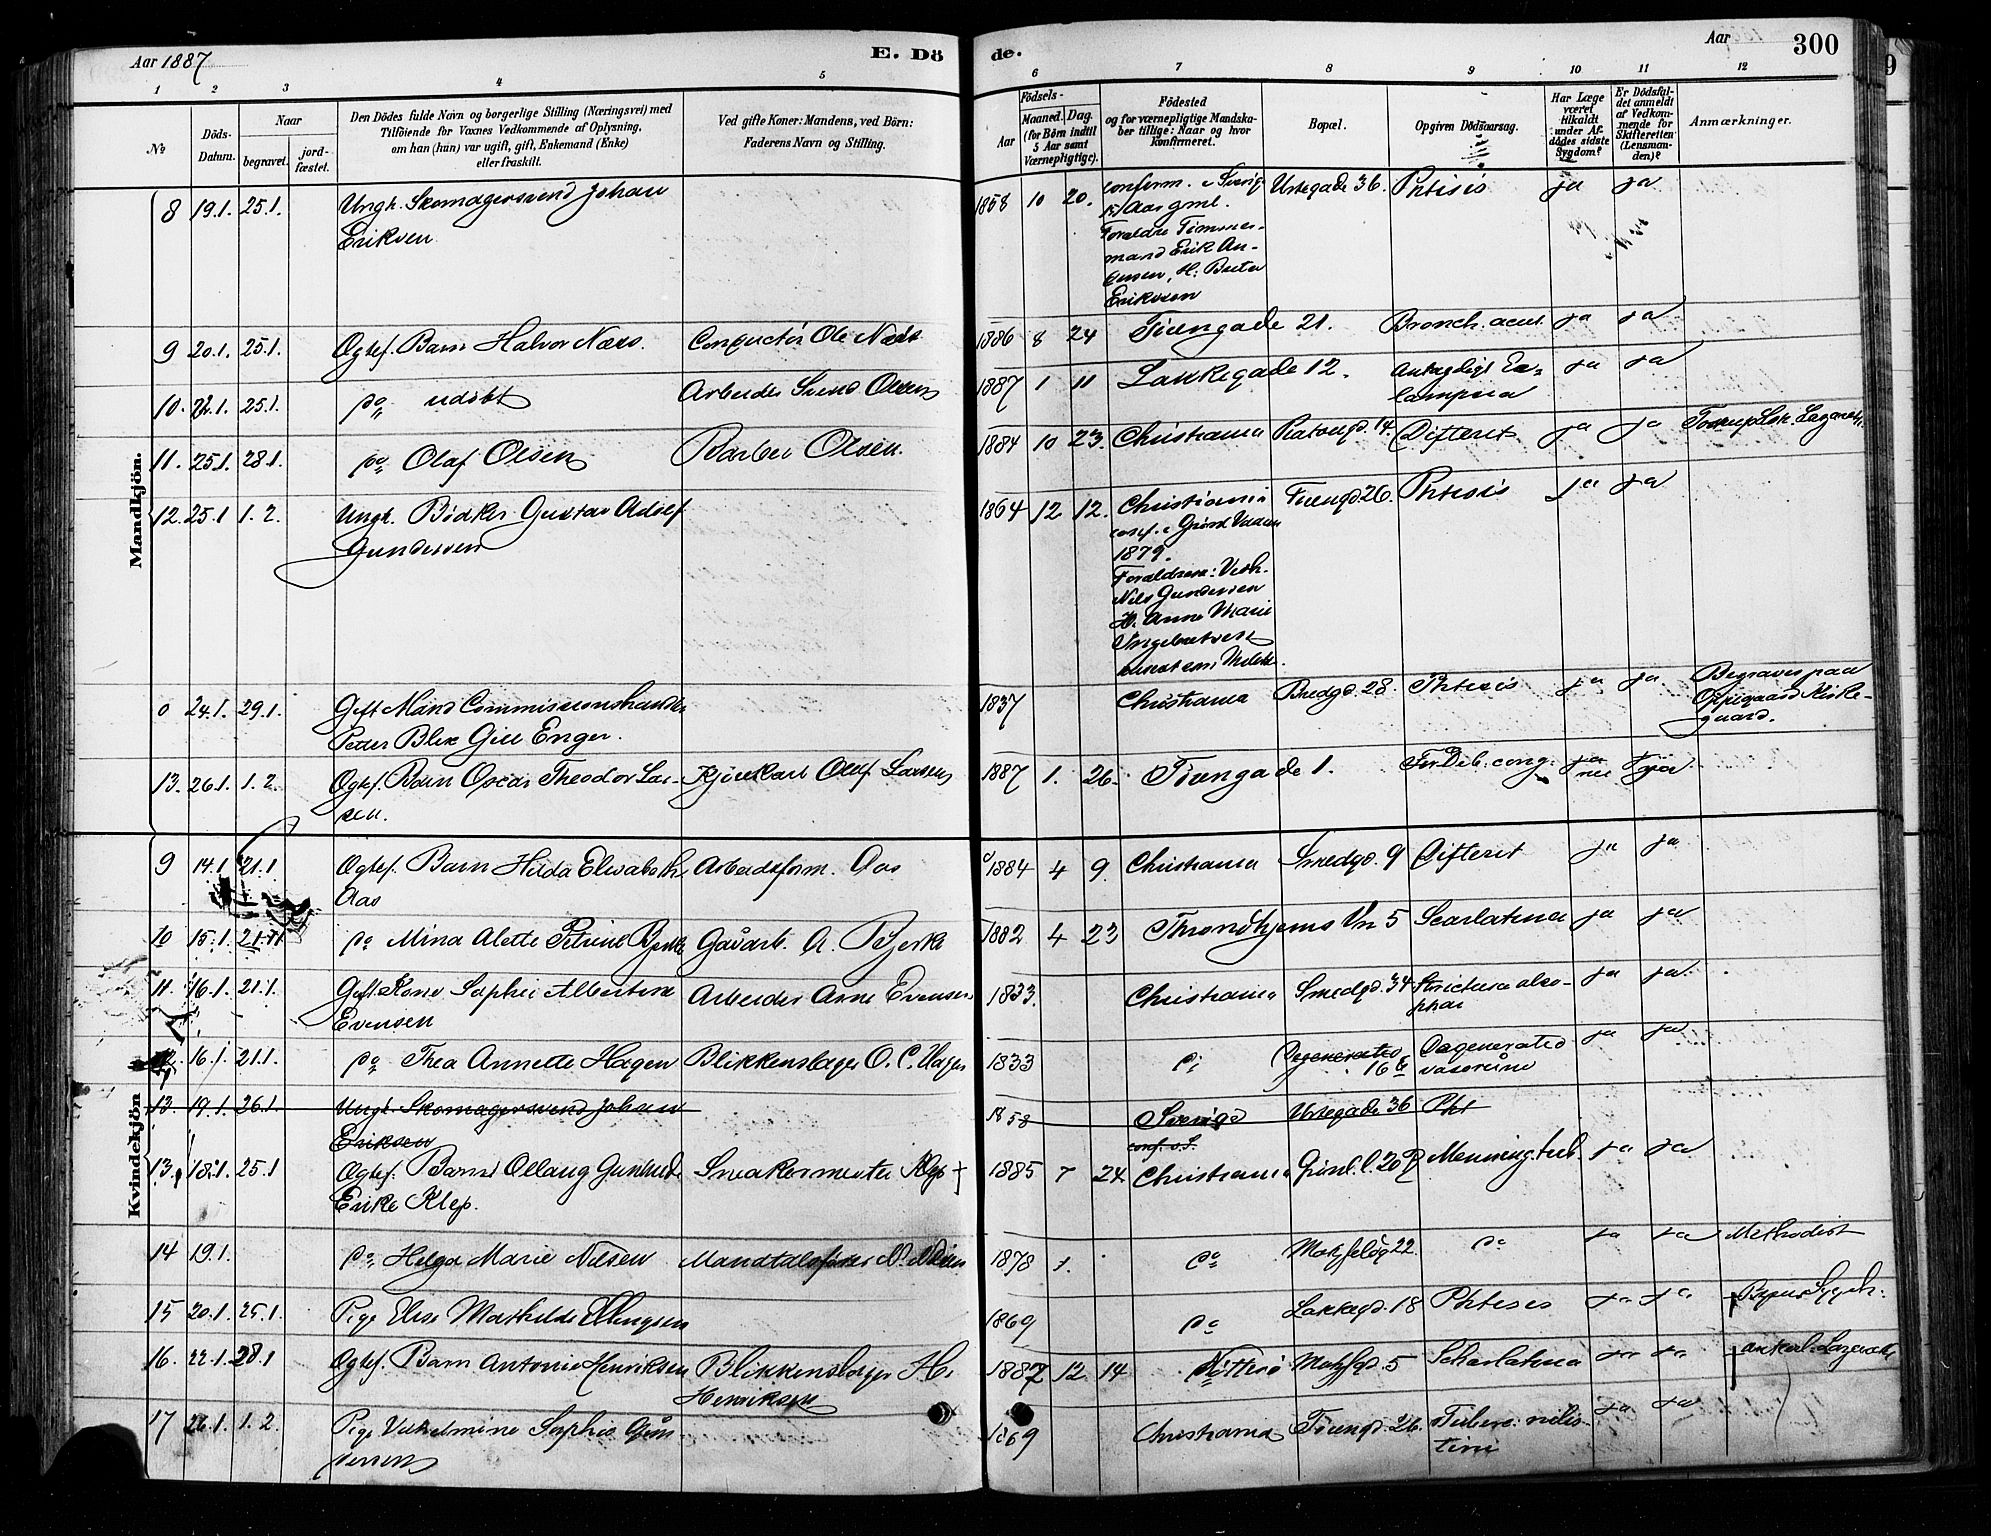 Aar 1887
E. Dö
de.
Aar
300
1 2 3 4 5
6 7 8 9 10 11 12
No
Döds-
Datum.
Naar
begravet.
jord-
fæstet.
Den Dödes fulde Navn og borgerlige Stilling (Næringsvei) med
Tilföiende for Voxnes Vedkommende af Oplysning,
om han (hun) var ugift, gift, Enkemand (Enke)
eller fraskilt.
Ved gifte Koner: Mandens, ved Börn:
Faderens Navn og Stilling.
Födsels-
Aar
Maaned. Dag.
(for Börn indtil
5 Aar samt
Værnepligtige).
Födested
og for værnepligtige Mandska-
ber tillige: Naar og hvor
konfirmeret.
Bopæl.
Opgiven Dödsaarsag.
Har Læge
været
tilkaldt
under Af-
dödes sidste
Sygdom?
Er Dödsfal-
det anmeldt
af Vedkom-
mende for
Skifteretten
(Lensman-
den)?
Anmærkninger.
Mandkjön.
8 19.1. 25.1. Ungk. Skomagersvend Johan
Eriksen
1858 10 20. conferm. i Sverig Urtegade 36. Phtisis ja ja
15 Aar gml.
Foraldre Timmer-
mand Erik An-
Eriksen
9 20.1. 25.1. Ogtef. Barn Halvor Næss. Conductör Ole Næss 1886 8 24 Töiengade 21. Bronch. acut. ja ja
10. 22.1. 25.1. do udöbt Arbeider Svend Olsen 1887 1 11 Lakkegade 12. Antageligt Ec-
lampsia ja ja
11. 25.1. 28.1. do Olaf Olsen Barber Olsen. 1884 10 23. Christiania 14. Difterit ja ja
12. 25.1 1.2. Ungk. Bödker Gustav Adolf
Gundersen
1864 12 12. Christiania Töiengd 26. Phtisis ja ja
conf. i Grönl
1879.
Foraldrene:
Nils Gundersen
H. Anne Marie
Ingebretsen
0 24.1. 29.1. Gift Mand Commissionshandler
Petter Blix Gill Enger.
1837 Christiania Bredgd. 28. Phtisis ja ja Begraves paa
Oppegaard Kirke-
gaard.
13. 26.1. 1.2. Ogtef. Barn Oscar Theodor Lar-
sen.
Kjörekarl Olaf Larsen 1887 1. 26. Töiengade 1. Deb. cong. ja
nei ja
Kvindekjön
9 14.1. 21.1 Ogtef. Barn Hilda Elisabeth
Aas
Arbeidsform. Aas 1884 4 9. Christiania Smedgd. 9 Difterit ja ja
10 15.1. 21.1 do Mina Alette Petrine Bjerke Gaardb. A. Bjerke 1882 4 23 Throndhjems Vn 5 Scarlatina ja ja
11. 16.1. 21.1. Gift Kone Sophie Albertine
Evensen
Arbeider Arne Evensen 1833. Christiania Smedgd. 34 Strictura oeso-
phai ja ja
12. 16.1. 21.1. do Thea Annette Hagen Blikkenslager O. C. Hagen 1833 do Degeneratio
16 b Degeneratio
ja ja
13. 19.1. 26.1. Ungk. Skomagersvend Johan
Eriksen
1858 Sverige Urtegade 36 Pht
conf. i S.
13. 18.1. 25.1 Ogtef. Barn Ollaug Gunhilde
Erike Klep.
Snekermester Klep 1885 7 24 Christiania Grönl. l. 20 Mening. tub. ja ja
14 19.1. do Helga Marie Nilsen Mandtalsförer N. Nilsen 1878 1. do 22. do ja ja Methodist
15 20.1. 25.1. Pige Elise Mathilde Ellingsen 1869 do Lakkegd. 18 Phtisis ja ja
16. 22.1. 28.1 Ogtef. Barn Antonie Henriksen Blikkenslager H.
Henriksen
1882 12. 14 5 Scharlatina ja ja
17 26.1. 1.2. Pige Vilhelmine Sophie Gun-
dersen
1869 Christiania Töiengd. 26. Tuberc.
tini ja ja